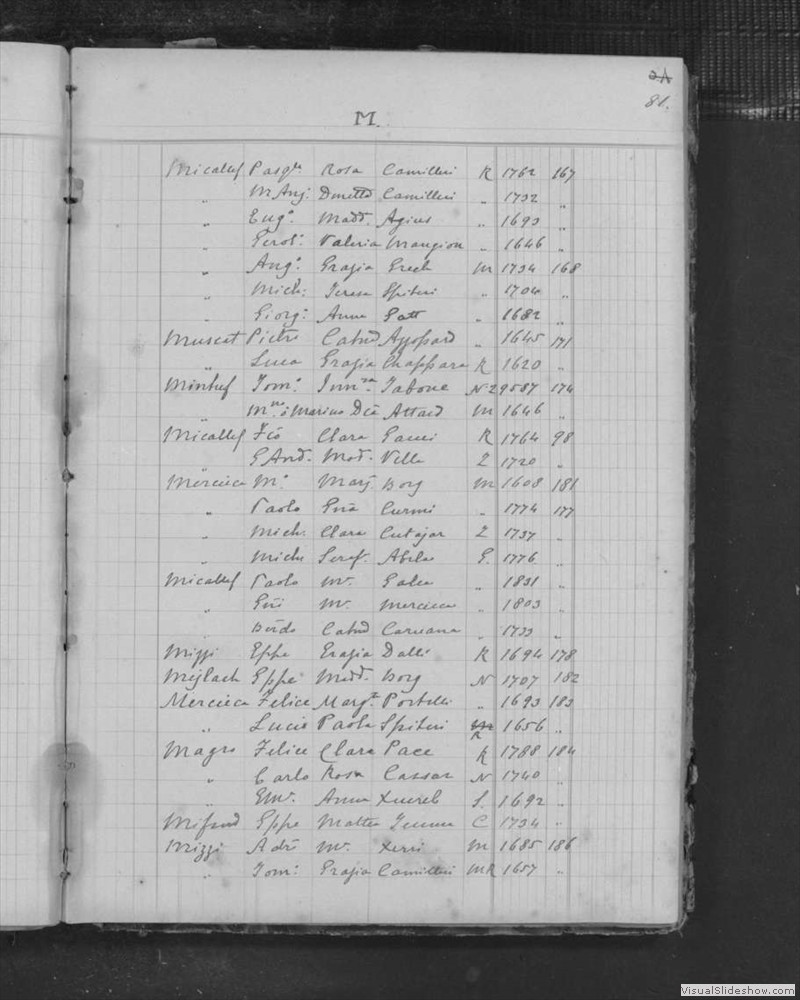 2A
81.
M.
Micallef Pasqle Rosa Camilleri R 1762 167
" M Ang: Dmetta Camilleri " 1732 "
" Eugo. Madd. Agius " 1693 "
" Gerolo. Valeria Mangion " 1646 "
" Ango. Grazia Grech M 1734 168
" Mich: Teresa Spiteri " 1704 "
" Giorgo: Anna Gatt " 1682 "
Muscat Pietro Catnd Ayossard " 1645 171
" Luca Grazia Chappara R 1620 "
Mintuf Tomo. Imma Tabone N 29587 174
" Mno o Marino Dca Attard M 1646 "
Micallef Fco Clara Gauci R 1764 98
" G And. Mad. Vella Z 1720 "
Mercieca Mo. Marg. Borg M 1608 181
" Paolo Gna Curmi " 1774 177
" Mich. Clara Cutajar Z 1737 "
" Mich Seraf. Abela G. 1776 "
Micallef Paolo Ma. Galea " 1831 "
" Gni Ma. Mercieca " 1803 "
" Berdo Catnd Caruana " 1733 "
Mizzi Eppe Grazia Dalli R 1694 178
Mejlach Eppe Madd. Borg N 1707 182
Mercieca Felice Margta Portelli " 1693 183
" Lucio Paola Spiteri R 1656 "
Magro Felice Clara Pace R 1788 184
" Carlo Rosa Cassar N 1740 "
" Eml. Anna Xuereb S. 1692 "
Mifsud Eppe Mattea C 1734 "
Mizzi Adr Ma. Xerri M 1685 186
" Tomo: Grazia Camilleri MR 1657 "
VisualSlideshow.com